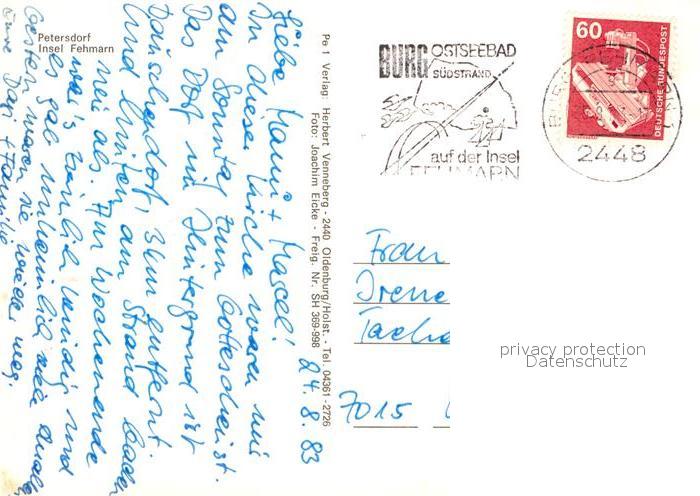 Petersdorf
Insel Fehmarn
Pe 1 Verlag: Herbert Venneberg - 2440 Oldenburg/Holst. - Tel. 04361-2726
Foto: Joachim Eicke - Freig. Nr. SH 369-998
24.8.83
Liebe Mami + Marcel!
In dieser Kirche waren wir
am Sonntag zum Gottesdienst.
Das Dorf im Hintergrund ist
Dänschendorf, 3 km entfernt.
Und hinten am Strand baden
wir als. Am Wochenende
war's ziemlich windig und
es gab unheimlich viele
Gestern waren sie wieder weg.
Eure + Familie
BURG OSTSEEBAD
SÜDSTRAND
auf der Insel
FEHMARN
60
DEUTSCHE BUNDESPOST
2448
Frau
Irene
7015
privacy protection
Datenschutz